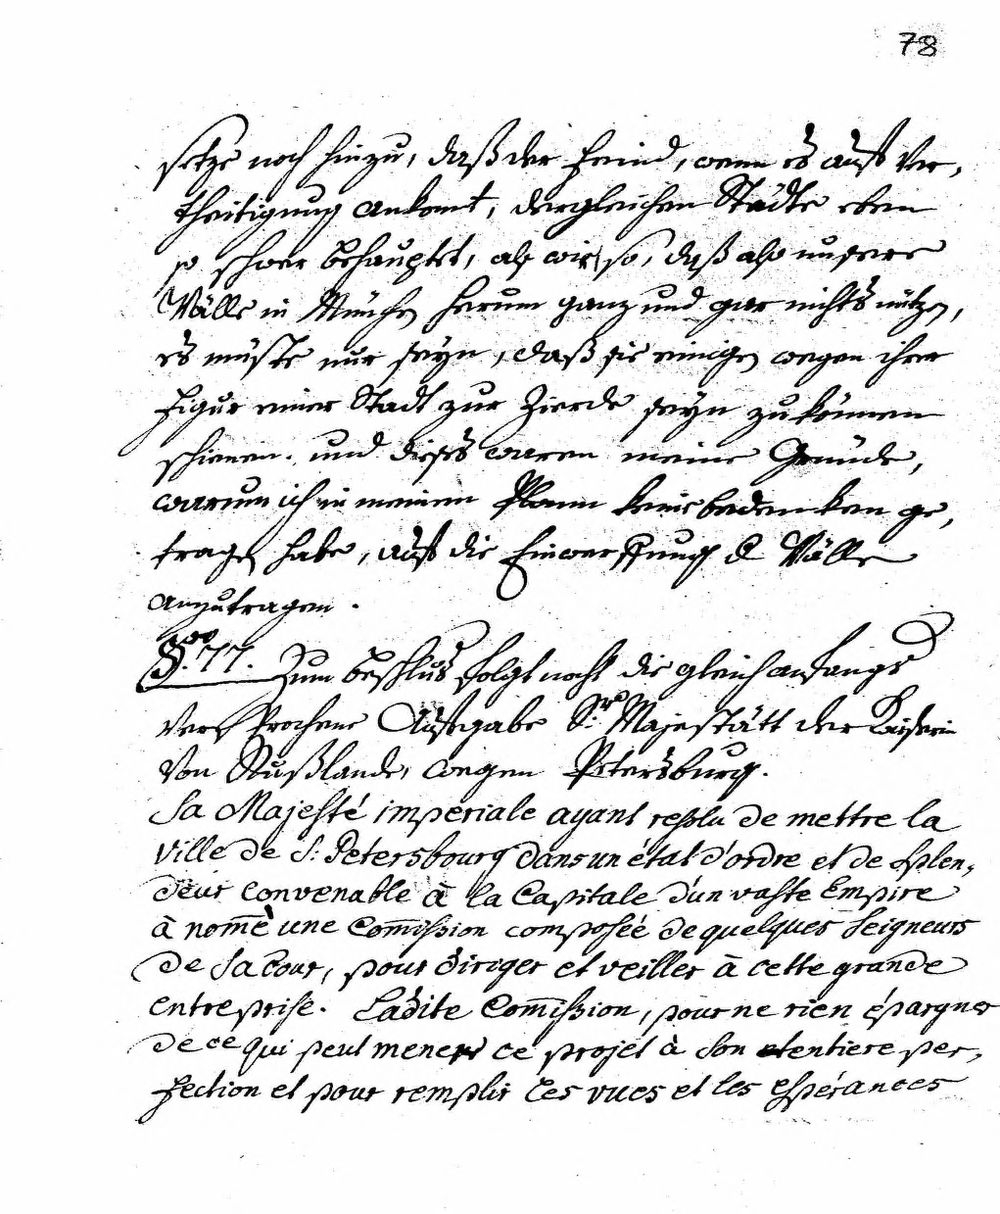 78
setze noch hinzu, daß der Feind, wenn es auf Ver,
theitigung ankomt, dergleichen Städte eben
so schwer behauptet, als wir so, daß also unsere
Wälle in München herum ganz und gar nichts nützen,
es müste nur seyn, daß sie einigen wegen ihrer
Figur einer Stadt zur Zierde seyn zu können
schienen. und dieses waren meine Gründe,
warum ich in meinem Plann kein bedenken ge,
tragen habe, auf die Einwerffung d Wälle
anzutragen.
§. 77. Zum beschlus folgt noch die gleich anfangs
versprochene Aufgabe Sr. Majestätt der Kaiserin
von Rußlande, wegen Petersburg.
Sa Majesté imperiale ayant resolu de mettre la
ville de S: Petersbourg dans un état d'ordre et de splen,
deur convenable à la Capitale d'un vaste Empire
à nom̅é une Com̅ission composée de quelques Seigneurs
de Sa Cour, pour diriger et veiller à cette grande
entreprise. Ladite Com̅ission, pour ne rien épargner
de ce qui peut mener ce projet à son entiere per,
fection et pour remplir les vues et les espérances